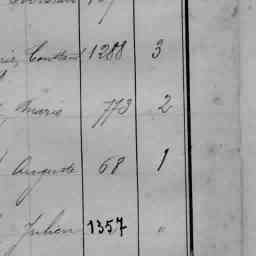 Constant 1288 3
Marie 773 2
Auguste 68 1
Julien 1357 "